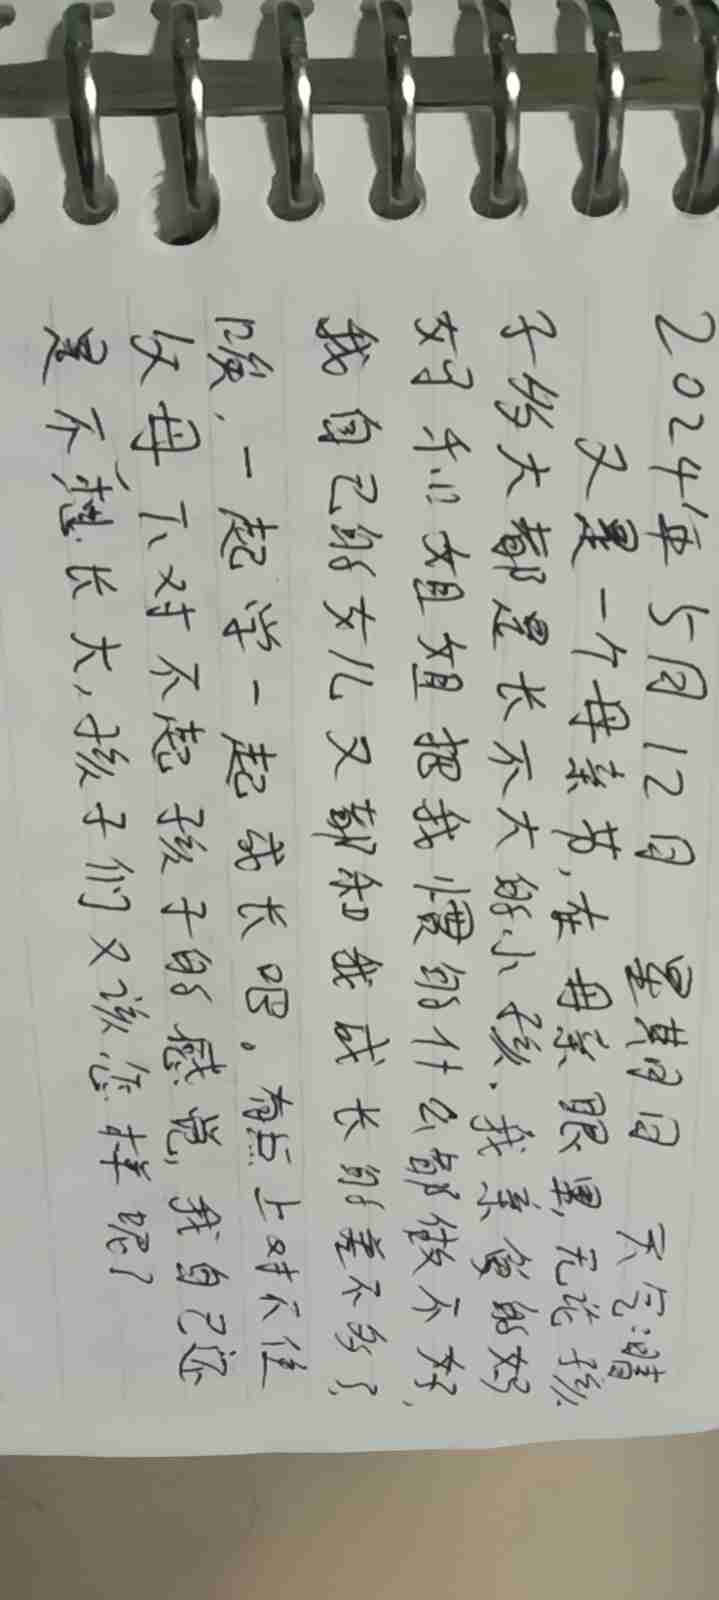 2024年5月12日 星期日 天气:晴
又是一个母亲节,在母亲眼里,无论孩
子多大都是长不大的小孩.我亲爱的好
好 姐姐把我惯的什么都做不好,
我自己的女儿又都和我成长的差不多了,
唉,一起学一起成长吧。有点上对不住
父母下对不起孩子的感觉,我自己还
是不想长大,孩子们又该怎样呢?